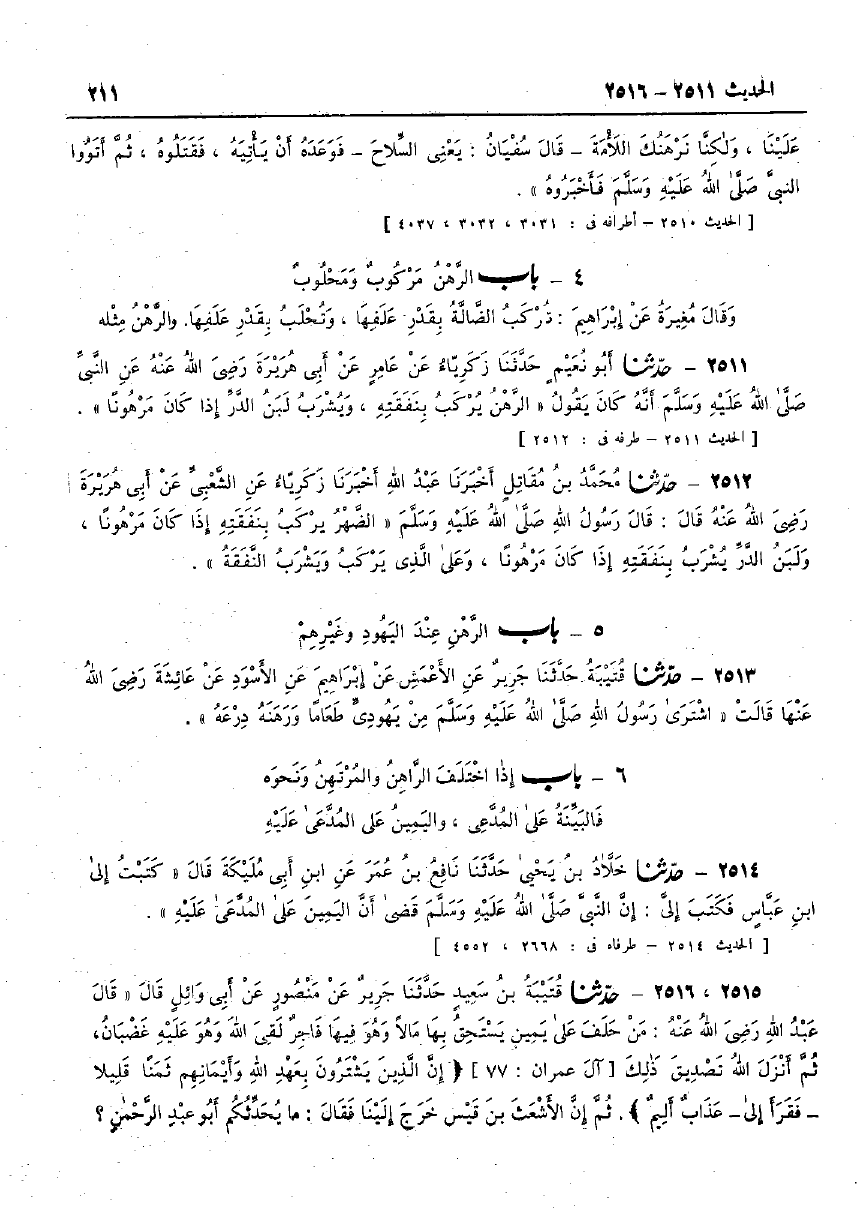 الحديث ٢٥١١ – ٢٥١٦ ٢١١
عَلَيْنَا ، وَلَكِنَّا نَرْهَنُكَ اللَّأْمَةَ – قَالَ سُفْيَانُ : يَعْنِى السِّلاَحَ – فَوَعَدَهُ أَنْ يَأْتِيَهُ ، فَقَتَلُوهُ ، ثُمَّ أَتَوُوا
النبىَّ صَلَّىٰ اللهُ عَلَيْهِ وَسَلَّمَ فَأَخْبَرُوهُ » .
[ الحديث ٢٥١٠ – أطرافه فى : ٣٠٣١ ، ٣٠٣٢ ، ٤٠٣٧ ]
٤ – باب الرَّهْنُ مَرْكُوبٌ وَمَحْلُوبٌ
وَقَالَ مُغِيرَةُ عَنْ إِبْرَاهِيمَ : تُرْكَبُ الضَّالَّةُ بِقَدْرِ عَلَفِهَا ، وَتُحْلَبُ بِقَدْرِ عَلَفِهَا. والرَّهْنُ مِثْله
٢٥١١ – حدّثنا أَبُو نُعَيْمٍ حَدَّثَنَا زَكَرِيَّاءُ عَنْ عَامِرٍ عَنْ أَبِى هُرَيْرَةَ رَضِىَ اللهُ عَنْهُ عَنِ النَّبِىِّ
صَلَّىٰ اللهُ عَلَيْهِ وَسَلَّمَ أَنَّهُ كَانَ يَقُولُ « الرَّهْنُ يُرْكَبُ بِنَفَقَتِهِ ، وَيُشْرَبُ لَبَنُ الدَّرِّ إِذا كَانَ مَرْهُونًا » .
[ الحديث ٢٥١١ – طرفه فى : ٢٥١٢ ]
٢٥١٢ – حدّثنا مُحَمَّدُ بنُ مُقَاتِلٍ أَخْبَرَنَا عَبْدُ اللهِ أَخْبَرَنَا زَكَرِيَّاءُ عَنِ الشَّعْبِىِّ عَنْ أَبِى هُرَيْرَةَ
رَضِىَ اللهُ عَنْهُ قَالَ : قَالَ رَسُولُ اللهِ صَلَّىٰ اللهُ عَلَيْهِ وَسَلَّمَ « الظَّهْرُ يرْكَبُ بِنَفَقَتِهِ إِذَا كَانَ مَرْهُونًا ،
وَلَبَنُ الدَّرِّ يُشْرَبُ بِنَفَقَتِهِ إِذَا كَانَ مَرْهُونًا ، وَعَلىٰ الَّذِى يَرْكَبُ وَيَشْرَبُ النَّفَقَةُ » .
٥ – باب الرَّهْنِ عِنْدَ اليَهُودِ وغَيْرِهِمْ
٢٥١٣ – حدّثنا قُتَيْبَةُ حَدَّثَنَا جَرِيرٌ عَنِ الأَعْمَشِ عَنْ إِبْرَاهِيمَ عَنِ الأَسْوَدِ عَنْ عَائِشَةَ رَضِىَ اللهُ
عَنْهَا قَالَتْ « اشْتَرَىٰ رَسُولُ اللهِ صَلَّىٰ اللهُ عَلَيْهِ وَسَلَّمَ مِنْ يَهُودِىٍّ طَعَامًا وَرَهَنَهُ دِرْعَهُ » .
٦ – باب إِذَا اخْتَلَفَ الرَّاهِنُ والمُرْتَهِنُ وَنَحوَه
فَالبَيِّنَةُ عَلىٰ المُدَّعِى ، واليَمِينُ عَلى المُدَّعَىٰ عَلَيْهِ
٢٥١٤ – حدّثنا خَلَّادُ بنُ يَحْيىٰ حَدَّثَنَا نَافِعُ بنُ عُمَرَ عَنِ ابنِ أَبِى مُلَيْكَةَ قَالَ « كَتَبْتُ إِلىٰ
ابنِ عَبَّاسٍ فَكَتَبَ إِلىَّ : إِنَّ النَّبِىَّ صَلَّىٰ اللهُ عَلَيْهِ وَسَلَّمَ قَضىٰ أَنَّ اليَمِينَ عَلىٰ المُدَّعَىٰ عَلَيْهِ » .
[ الحديث ٢٥١٤ – طرفاه فى : ٢٦٦٨ ، ٤٥٥٢ ]
٢٥١٥ ، ٢٥١٦ – حدّثنا قُتَيْبَةُ بنُ سَعِيدٍ حَدَّثَنَا جَرِيرٌ عَنْ مَنْصُورٍ عَنْ أَبِى وَائِلٍ قَالَ « قَالَ
عَبْدُ اللهِ رَضِىَ اللهُ عَنْهُ : مَنْ حَلَفَ عَلىٰ يَمِينٍ يَسْتَحِقُّ بِهَا مَالاً وَهُوَ فِيهَا فَاجِرٌ لَقِىَ اللهَ وَهُوَ عَلَيْهِ غَضْبَانُ،
ثُمَّ أَنْزَلَ اللهُ تَصْدِيقَ ذَلِكَ [ آلَ عمران : ٧٧ ] ﴿ إِنَّ الَّذِينَ يَشْتَرُونَ بِعَهْدِ اللهِ وَأَيْمَانِهِم ثَمَنًا قَلِيلا
– فَقَرَأَ إِلىٰ– عَذَابٌ أَلِيمٌ ﴾. ثُمَّ إِنَّ الأَشْعَثَ بنَ قَيْسٍ خَرَجَ إِلَيْنَا فَقَالَ : ما يُحَدِّثُكُم أَبُو عبْدِ الرَّحْمٰنِ ؟